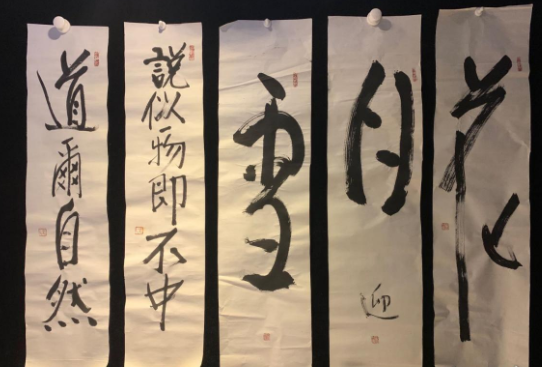 道爾自然
説似物即不中
雪
月
迎
花